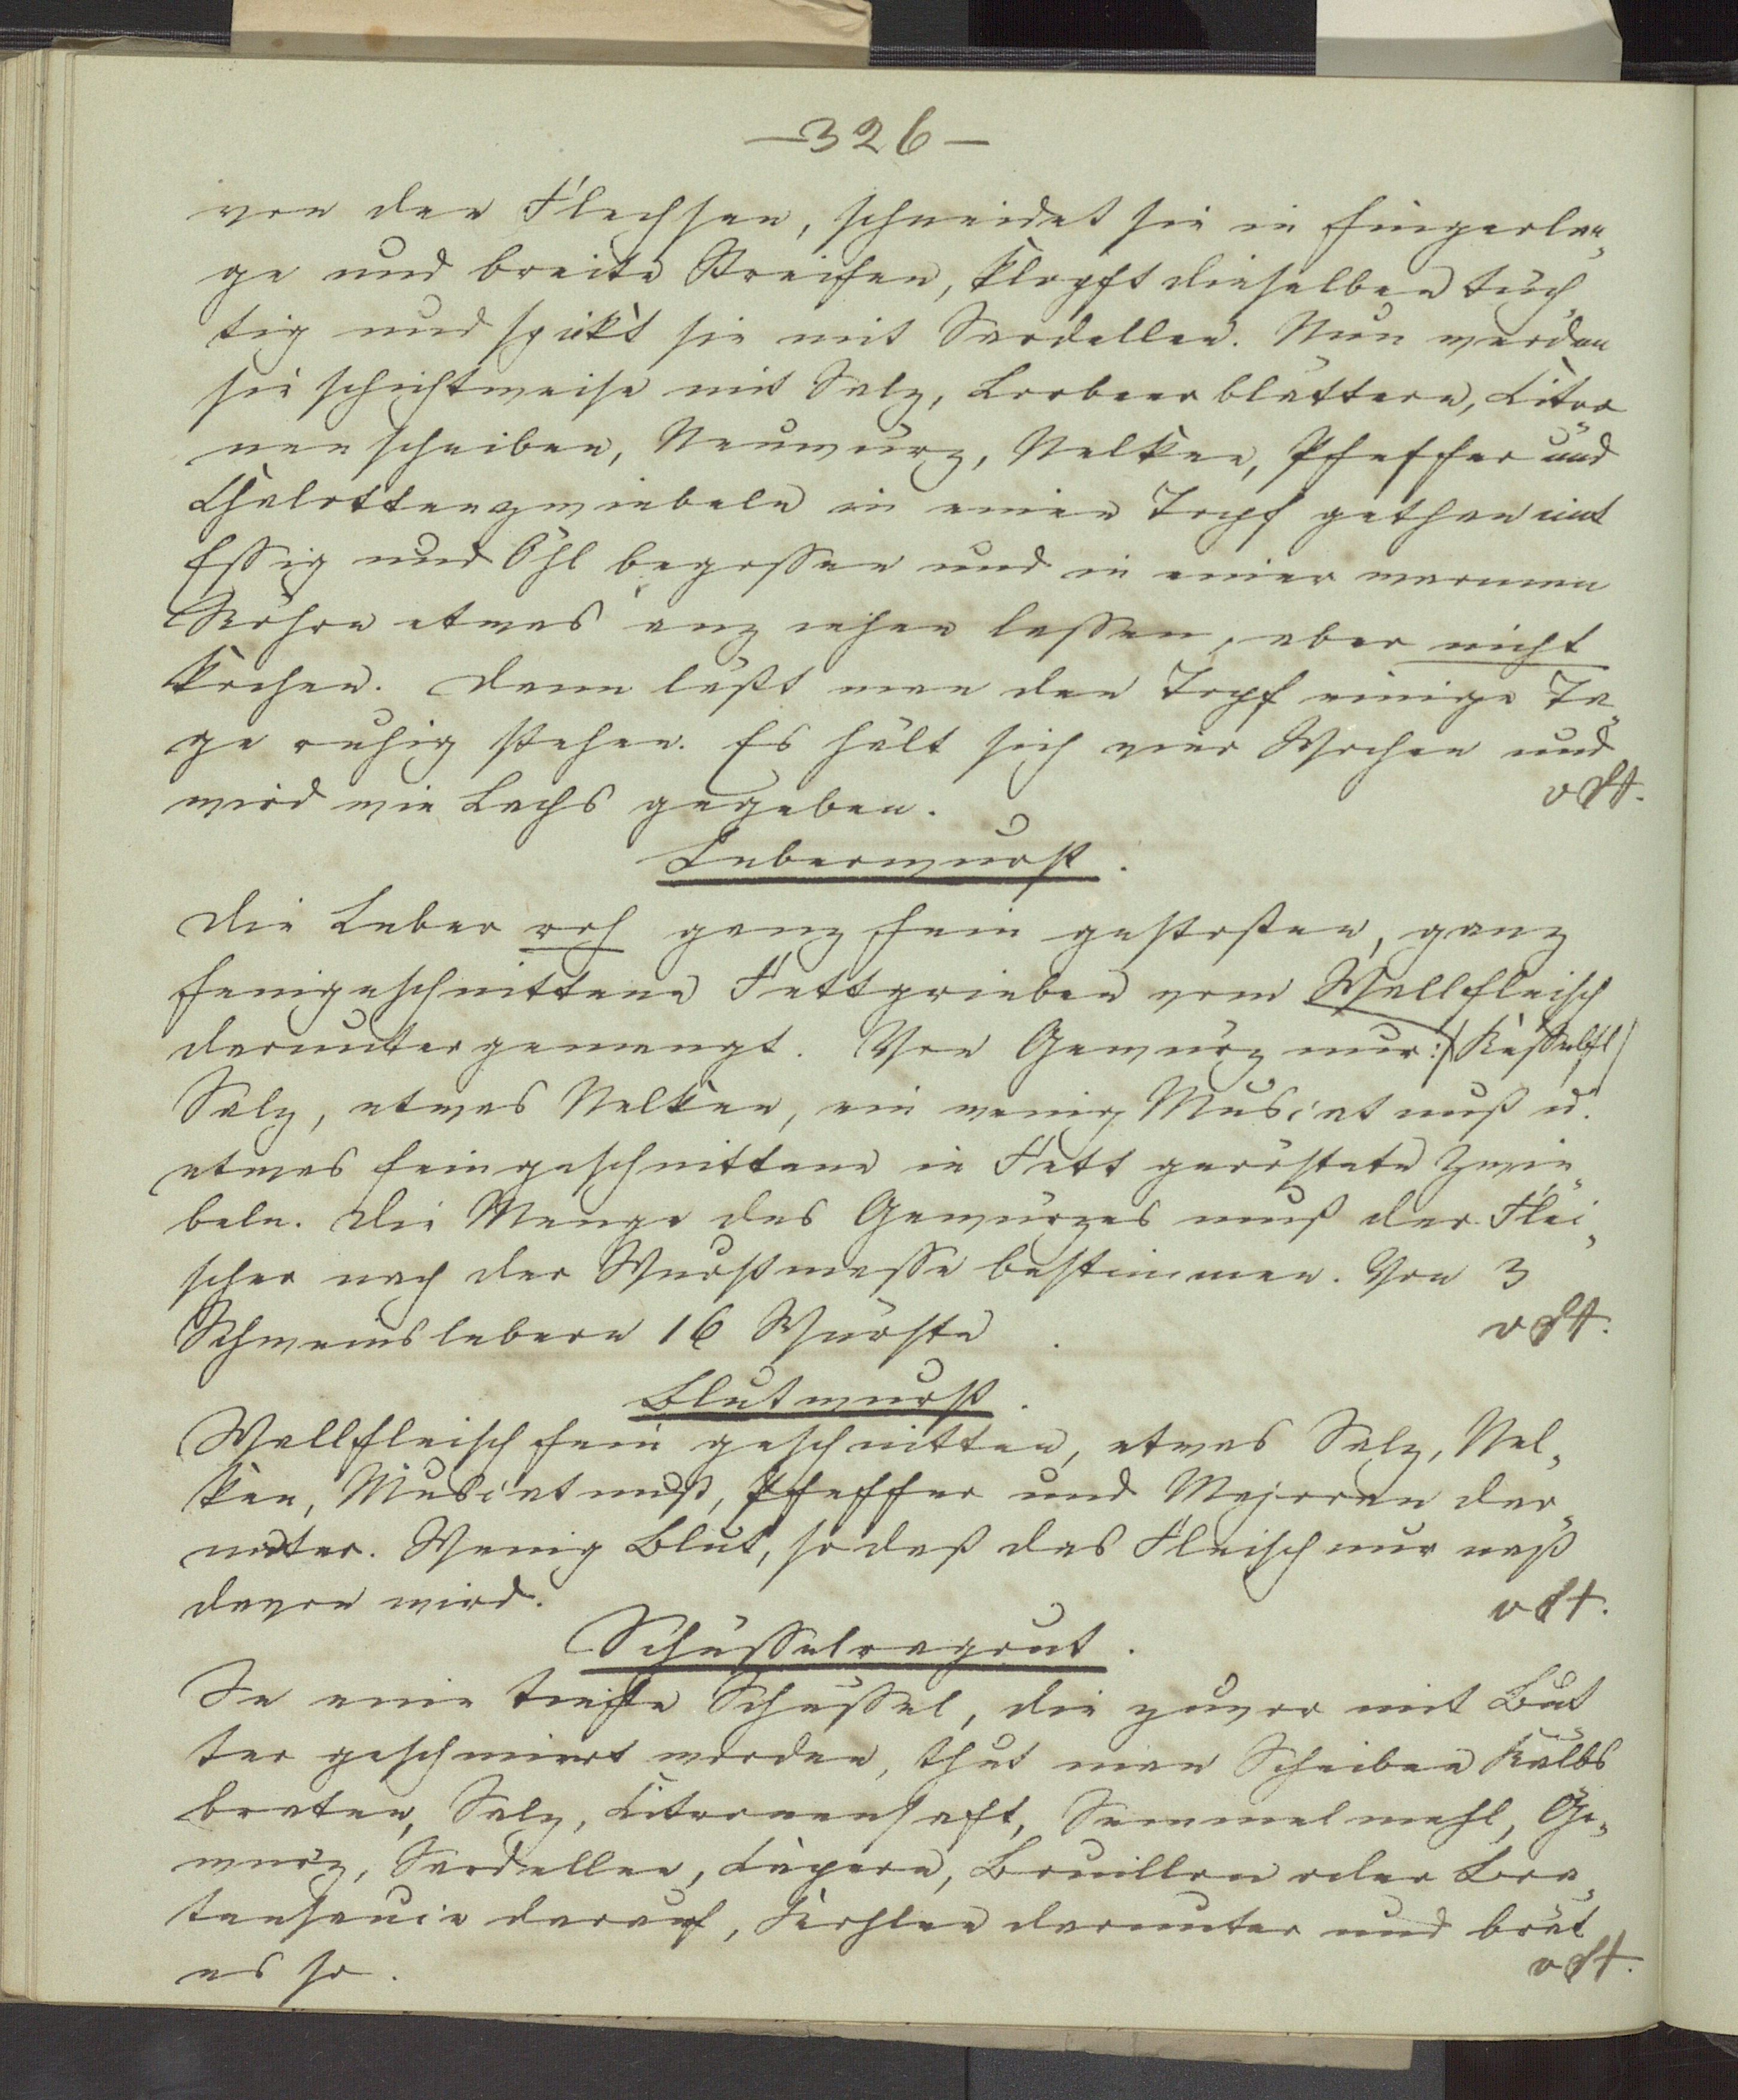 —326—
von den Flechsen, schneidet sie in fingerlan„
ge und breite Streifen, klopft dieselben tüch„
tig und spickt sie mit Sardellen. Nun werden
sie schichtweise mit Salz, Lorbeerblättern, Citro„
nenscheiben, Neuwürz, Nelken, Pfeffer und
Chalottenzwiebeln in einen Topf gethan mit
Essig und Öhl begossen und in einer warmen
Röhre etwas anziehen lassen, aber nicht
kochen. Dann läßt man den Topf einige Ta„
ge ruhig stehen. Es hält sich vier Wochen und
wird wie Lachs gegeben.
Leberwurst.
Die Leber roh ganz fein gestoßen, ganz
feingeschnittene Fettgrieben vom Wellfleisch
daruntergemengt. Von Gewürz nur: /Kesselfl/
Salz, etwas Nelken, ein wenig Muscatnuß u.
etwas feingeschnittene in Fett geröstete Zwie„
beln. Die Menge des Gewürzes muß der Flei„
scher nach der Wurstmasse bestimmen. Von 3
Schweinslebern 16 Würste.
Blutwurst.
Wellfleisch fein geschnitten, etwas Salz, Nel„
ken, Muscatnuß, Pfeffer und Majoran dar„
unter. Wenig Blut, so daß das Fleisch nur naß
davon wird.
Schüsselragout.
In eine tiefe Schüssel, die zuvor mit But„
ter geschmiert worden, thut man Scheiben Kalbs
braten, Salz, Citronensaft, Semmelmehl, Ge„
würz, Sardellen, Capern, Bouillon oder Bra„
tensauce darauf, Kohlen darunter und brät
es so.